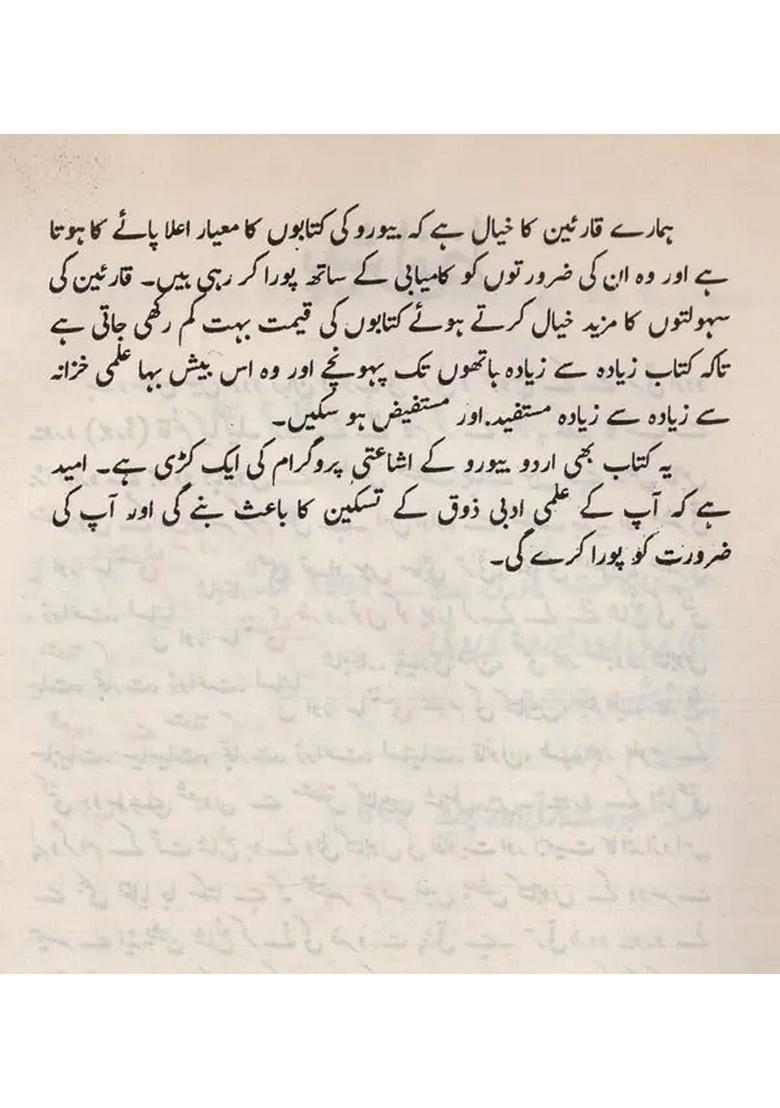 ہمارے قارئین کا خیال ہے کہ بیورو کی کتابوں کا معیار اعلا پائے کا ہوتا
ہے اور وہ ان کی ضرورتوں کو کامیابی کے ساتھ پورا کر رہی ہیں۔ قارئین کی
سہولتوں کا مزید خیال کرتے ہوئے کتابوں کی قیمت بہت کم رکھی جاتی ہے
تاکہ کتاب زیادہ سے زیادہ ہاتھوں تک پہونچے اور وہ اس بیش بہا علمی خزانہ
سے زیادہ سے زیادہ مستفید اور مستفیض ہو سکیں۔
یہ کتاب بھی اردو بیورو کے اشاعتی پروگرام کی ایک کڑی ہے۔ امید
ہے کہ آپ کے علمی ادبی ذوق کے تسکین کا باعث بنے گی اور آپ کی
ضرورت کو پورا کرے گی۔